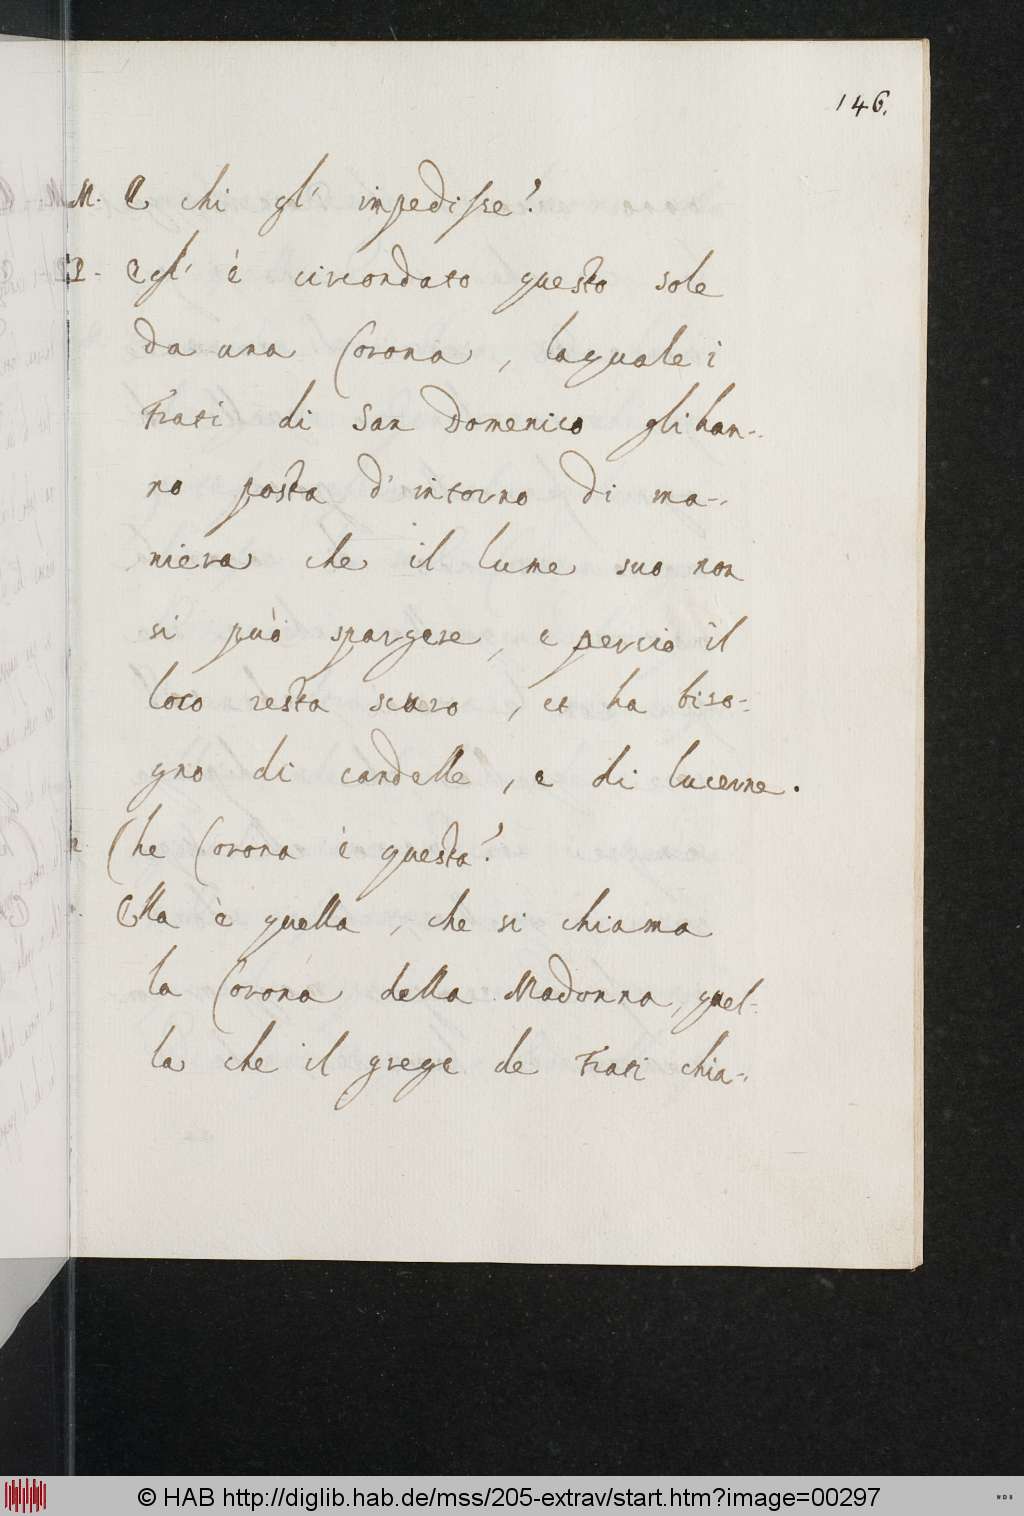 146.
M. E chi gl' impedisse?
P. Egl' è circondato questo sole
da una Corona, laquale i
Frati di San Domenico gli han-
no posta d'intorno di ma-
niera che il lume suo non
si può spargere, e percio il
loco resta scuro, et ha biso-
gno di candelle, e di lucerne.
Che Corona è questa?
Ella è quella, che si chiama
la Corona della Madonna, quel-
la che il grege de Frati chia-
© HAB http://diglib.hab.de/mss/205-extrav/start.htm?image=00297